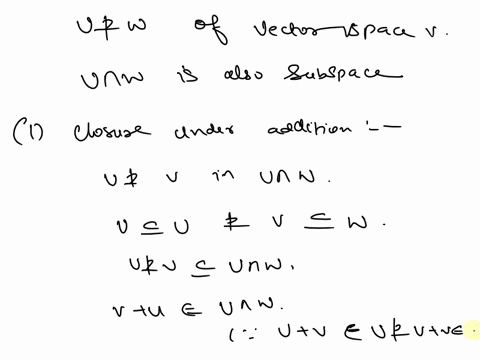 U & W of vector space V.
U∩W is also subspace
(1) closure under addition :-
U & V in U∩W.
V ⊆ U & V ⊆ W.
U & V ⊆ U∩W.
V+U ∈ U∩W.
(∵ U+V ∈ U & V+V∈